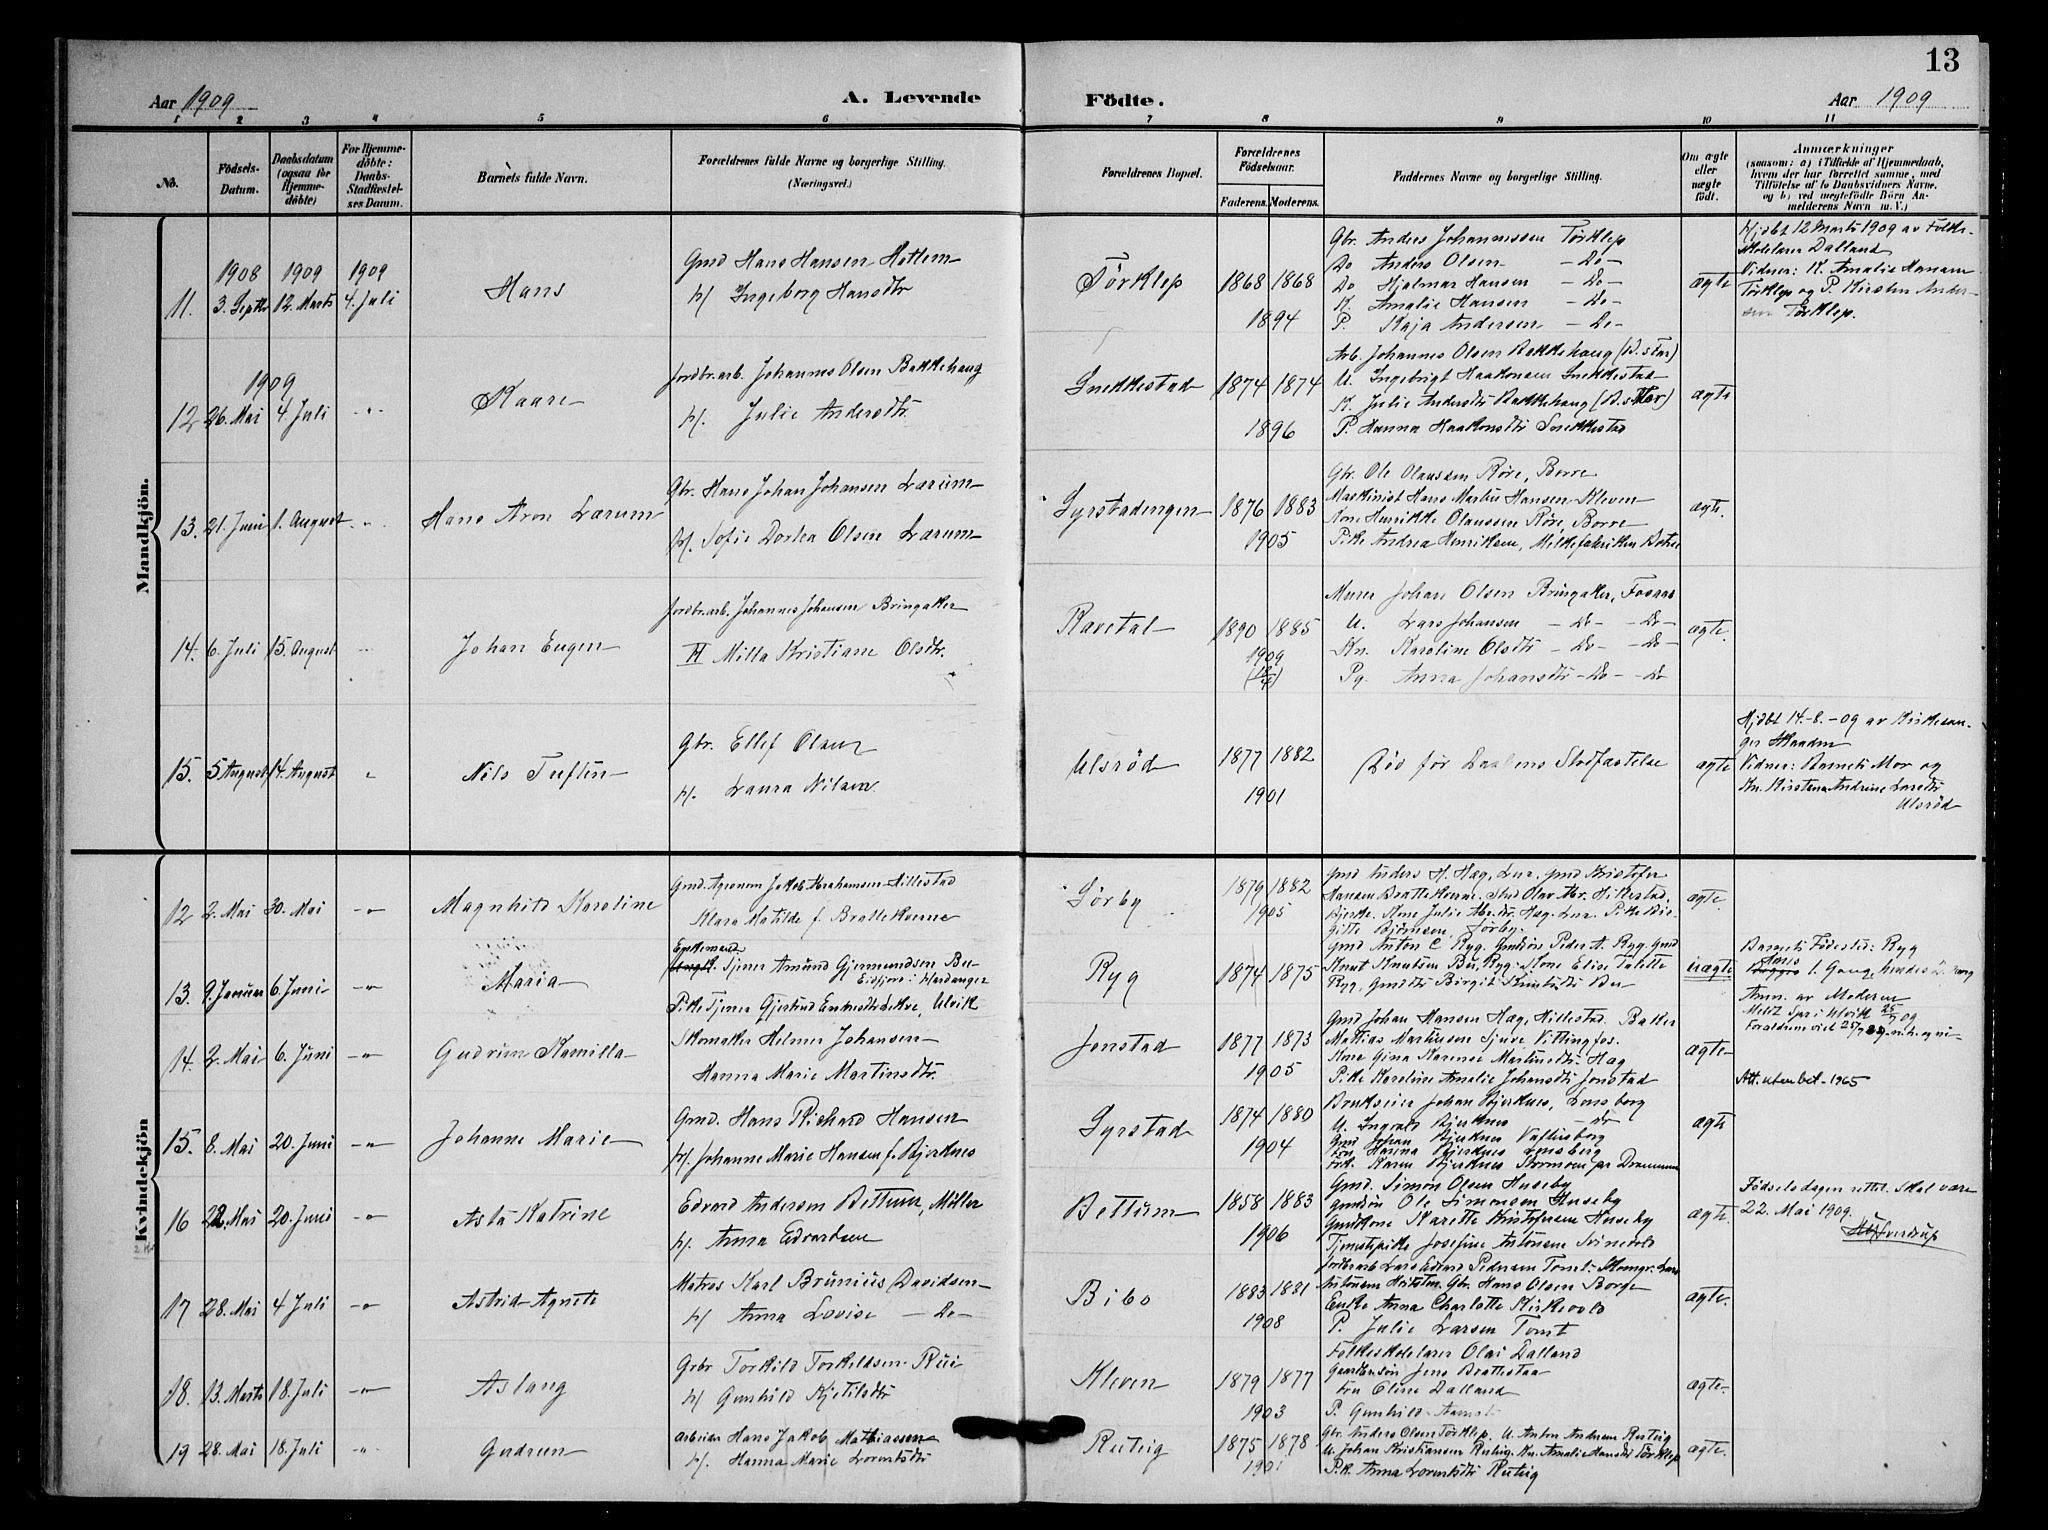 13
Aar 1909
A. Levende Födte.
Aar 1909
1 2 3 4 5 6 7 8 9 10 11
No.
Födsels-Datum.
Daabsdatum (ogsaa for Hjemmedöbte)
For Hjemmedöbte: Daabs-Stadfæstelses Datum.
Barnets fulde Navn.
Forældrenes fulde Navne og borgerlige Stilling. (Næringsvei.)
Forældrenes Bopæl.
Forældrenes Födselsaar.
Faderens. Moderens.
Faddernes Navne og borgerlige Stilling.
Om ægte eller uægte födt.
Anmærkninger
(saasom: a) i Tilfælde af Hjemmedaab,
hvem der har forrettet samme, med
Tilföielse af to Daabsvidners Navne,
og b) ved uægtefödte Börn An-
melderens Navn m. V.)
Mandkjön.
11. 1908 3. Septbr 1909 12. Marts 1909 4. Juli
Hans
Gmd Hans Hansen Hottem
h/ Ingeborg Hansdtr
Törklep
1868 1868
1894
Gbr. Anders Johannessen Törklep
Do Anders Olsen – Do –
Do Hjalmar Hansen – Do –
K. Amalie Hansen – Do –
P. Kaja Andersen – Do –
ægte
Hjdbt 12 Marts 1909 av Folke-
skolelærer Dalland
Vidner: K. Amalie Hansen
Törklep og P. Kirsten Ander-
sen Törklep.
12 1909 26. Mai 4 Juli - " -
Kaare
Jordbr.arb. Johannes Olsen Bakkehaug
h/. Julie Andersdtr.
Snekkestad
1874 1874
1896
Arb. Johannes Olsen Bakkehaug (B. s Far)
U. Ingebrigt Haakonsen Snekkestad
K. Julie Andersdtr Bakkehaug (B. s Mor)
P. Hanna Haakonsdtr Snekkestad
ægte
13. 21. Juni 1. August - " -
Hans Aron Larum
Gbr. Hans Johan Johansen Larum
h/. Sofie Dorthea Olsen Larum
Syrstadengen
1876 1883
1905
Gbr. Ole Olaussen Röre, Borre
Maskinist Hans Martin Hansen Kleven
Kone Henrikke Olaussen Röre, Borre
Pike Andrea Henriksen, Melkefabriken
ægte.
14. 6. Juli 15. August
Johan Eugen
Jordbr.arb. Johannes Johansen Bringaker
H Milla Kristiane Olsdtr.
Ravetal
1890 1885
1909
Murer Johan Olsen Bringaker, Fossas
U. Lars Johansen – Do – – Do –
Kn. Karoline Olsdtr – Do – – Do –
Pg. Anna Johansdtr – Do – – Do
ægte.
15. 5 August 14. August "
Nils Tuftin
Gbr. Ellef Olsen
h/. Laura Nilsen
Ulsröd
1877 1882
1901
Död för Daabens Stadfæstelse
ægte
Hjdbt 14.-8.-09 av Kirkesan-
ger
Vidner: Barnets Mor og
Kn. Kirstine Andrine
Ulsröd
Kvindekjön
12 2. Mai 30. Mai - " -
Magnhild Karoline
Gmd. Agronom Jakob Abrahamsen Hillestad
Klara Matilde f. Brattekverne
Sörby
1879 1882
1905
Gmd Anders H. Hag, Gmd Kristofer
Hansen Brattekverne. Stud Olav Abr. Hillestad.
Kone Julie Hag Pike Bir-
gitte Björnsen, Sörby.
ægte.
13. 9. Januar 6. Juni - " -
Maria
Enkemand
Tjener Amund Gjermundsen Bu
Eidfjord i Hardanger
Pike Tjener Gjertrud Lekve, Ulvik
Ryg
1874 1875
Gmd Anton C Ryg. Gmdsön Peder A. Ryg. Gmd
Knut Knutsen Bu, Ryg. Kone Elise
Ryg, Gmdtr Birgit Knutsdtr Bu
uægte
Barnets Födested: Ryg
hans 1. Gang, hendes 2. Gang
Anm. av Moderen
Meldt Spr i Ulvik 25/7 09
14. 2. Mai 6. Juni - " -
Gudrun Kamilla
Skomaker Helmer Johansen
Hanna Marie Martinsdtr.
Jonstad
1877 1873
1905
Gmd Johan Hansen Hag, Hillestad. Baker
Mattias Martinsen Sjuve Vittingfos.
Kone Gina Karense Martinsdtr. Hag
Pike Karoline Amalie Johansdtr Jonstad
ægte
Att. uten bet. 1965
15. 8. Mai 20. Juni - " -
Johanne Marie
Gmd. Hans Richard Hansen
h/. Johanne Marie Hansen f. Bjerknes
Syrstad
1874 1880
1904
Brukseier Johan Bjerknes, Tönsberg
U. Ingvald Bjerknes Do
Gmd Johan Bjerknes
Frk. Hanna Bjerknes Tönsberg
Frk. Karen Bjerknes Strömmen pr Drammen
ægte
16 22. Mai 20. Juni - " -
Asta Katrine
Edvard Andersen Bettum, Möller
h/. Anna Edvardsen
Bettum
1858 1883
1906
Gmd. Simon Olsen Huseby
Gmdsön Ole Simonsen Huseby
Gmdkone Karette Kristofersen Huseby
Tjenestepike Josefine Antonsen Svinevold
ægte.
Födselsdagen rettet. Skal være
22. Mai 1909.
17 28. Mai 4 Juli - " -
Astrid Agnete
Matros Karl Brunius Davidsen
h/ Anna Lovise – Do –
Bibo
1883 1881
1908
Jordbr.arb Lars Edvard Pedersen Tomt. Skomgr. Lars
Antonsen Gbr. Hans Olsen Borge
Enke Anna Charlotte Kirkevold
P. Julie Larsen Tomt
ægte.
18. 13. Marts 18. Juli - " -
Aslaug
Grbr Torkild Torkildsen Rui
h/ Gunhild Kjetilsdtr
Kleven
1879 1877
1903
Folkeskolelærer Olai Dalland
Gaardbr.sön Jens Brattestaa
Fru Oline Dalland
P. Gunhild
ægte
19 28. Mai 18. Juli "
Gudrun
Arbeider Hans Jakob Mathiassen
h/. Hanna Marie Lorentsdtr
Rutig
1875 1878
1901
Gbr. Anders Olsen Törklep. U. Anton Andersen Rutig
U. Johan Kristiansen Rutig. Kn. Amalie Hansdtr Törklep
P.k. Anna Lorentsdtr Rutig
ægte.